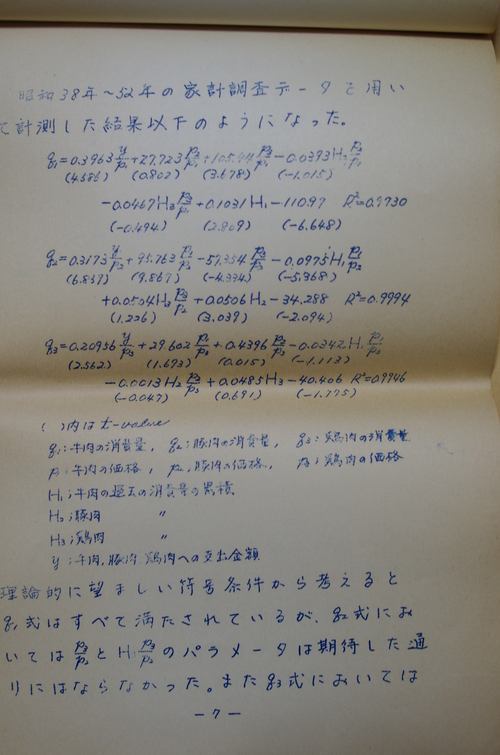 昭和38年〜52年の家計調査データを用い
て計測した結果以下のようになった。
g₁=0.3963 y/p₁+27.723 p₂/p₁+105.44 p₃/p₁-0.0393H₂ p₂/p₁
(4.686) (0.802) (3.678) (-1.015)
-0.0467H₃ p₃/p₁+0.1031H₁-110.97 R²=0.9730
(-0.494) (2.809) (-6.648)
g₂=0.3173 y/p₂+95.763 p₁/p₂-57.354 p₃/p₂-0.0975H₁ p₁/p₂
(6.857) (9.867) (-4.334) (-5.368)
+0.0504H₃ p₃/p₂+0.0506H₂-34.288 R²=0.9994
(1.226) (3.039) (-2.094)
g₃=0.20956 y/p₃+29.602 p₁/p₃+0.4396 p₂/p₃-0.0342H₁ p₁/p₃
(2.562) (1.693) (0.015) (-1.113)
-0.0013H₂ p₂/p₃+0.0485H₃-40.406 R²=0.9946
(-0.047) (0.691) (-1.775)
( )内はt-value
g₁:牛肉の消費量, g₂:豚肉の消費量, g₃:鶏肉の消費量
p₁:牛肉の価格, p₂:豚肉の価格, p₃:鶏肉の価格
H₁:牛肉の過去の消費量の累積
H₂:豚肉 〃
H₃:鶏肉 〃
y:牛肉,豚肉,鶏肉への支出金額
理論的に望ましい符号条件から考えると
g₁式はすべて満たされているが、g₂式にお
いてはp₃/p₂とH₃p₃/p₂のパラメータは期待した通
りにはならなかった。またg₃式においては
-7-